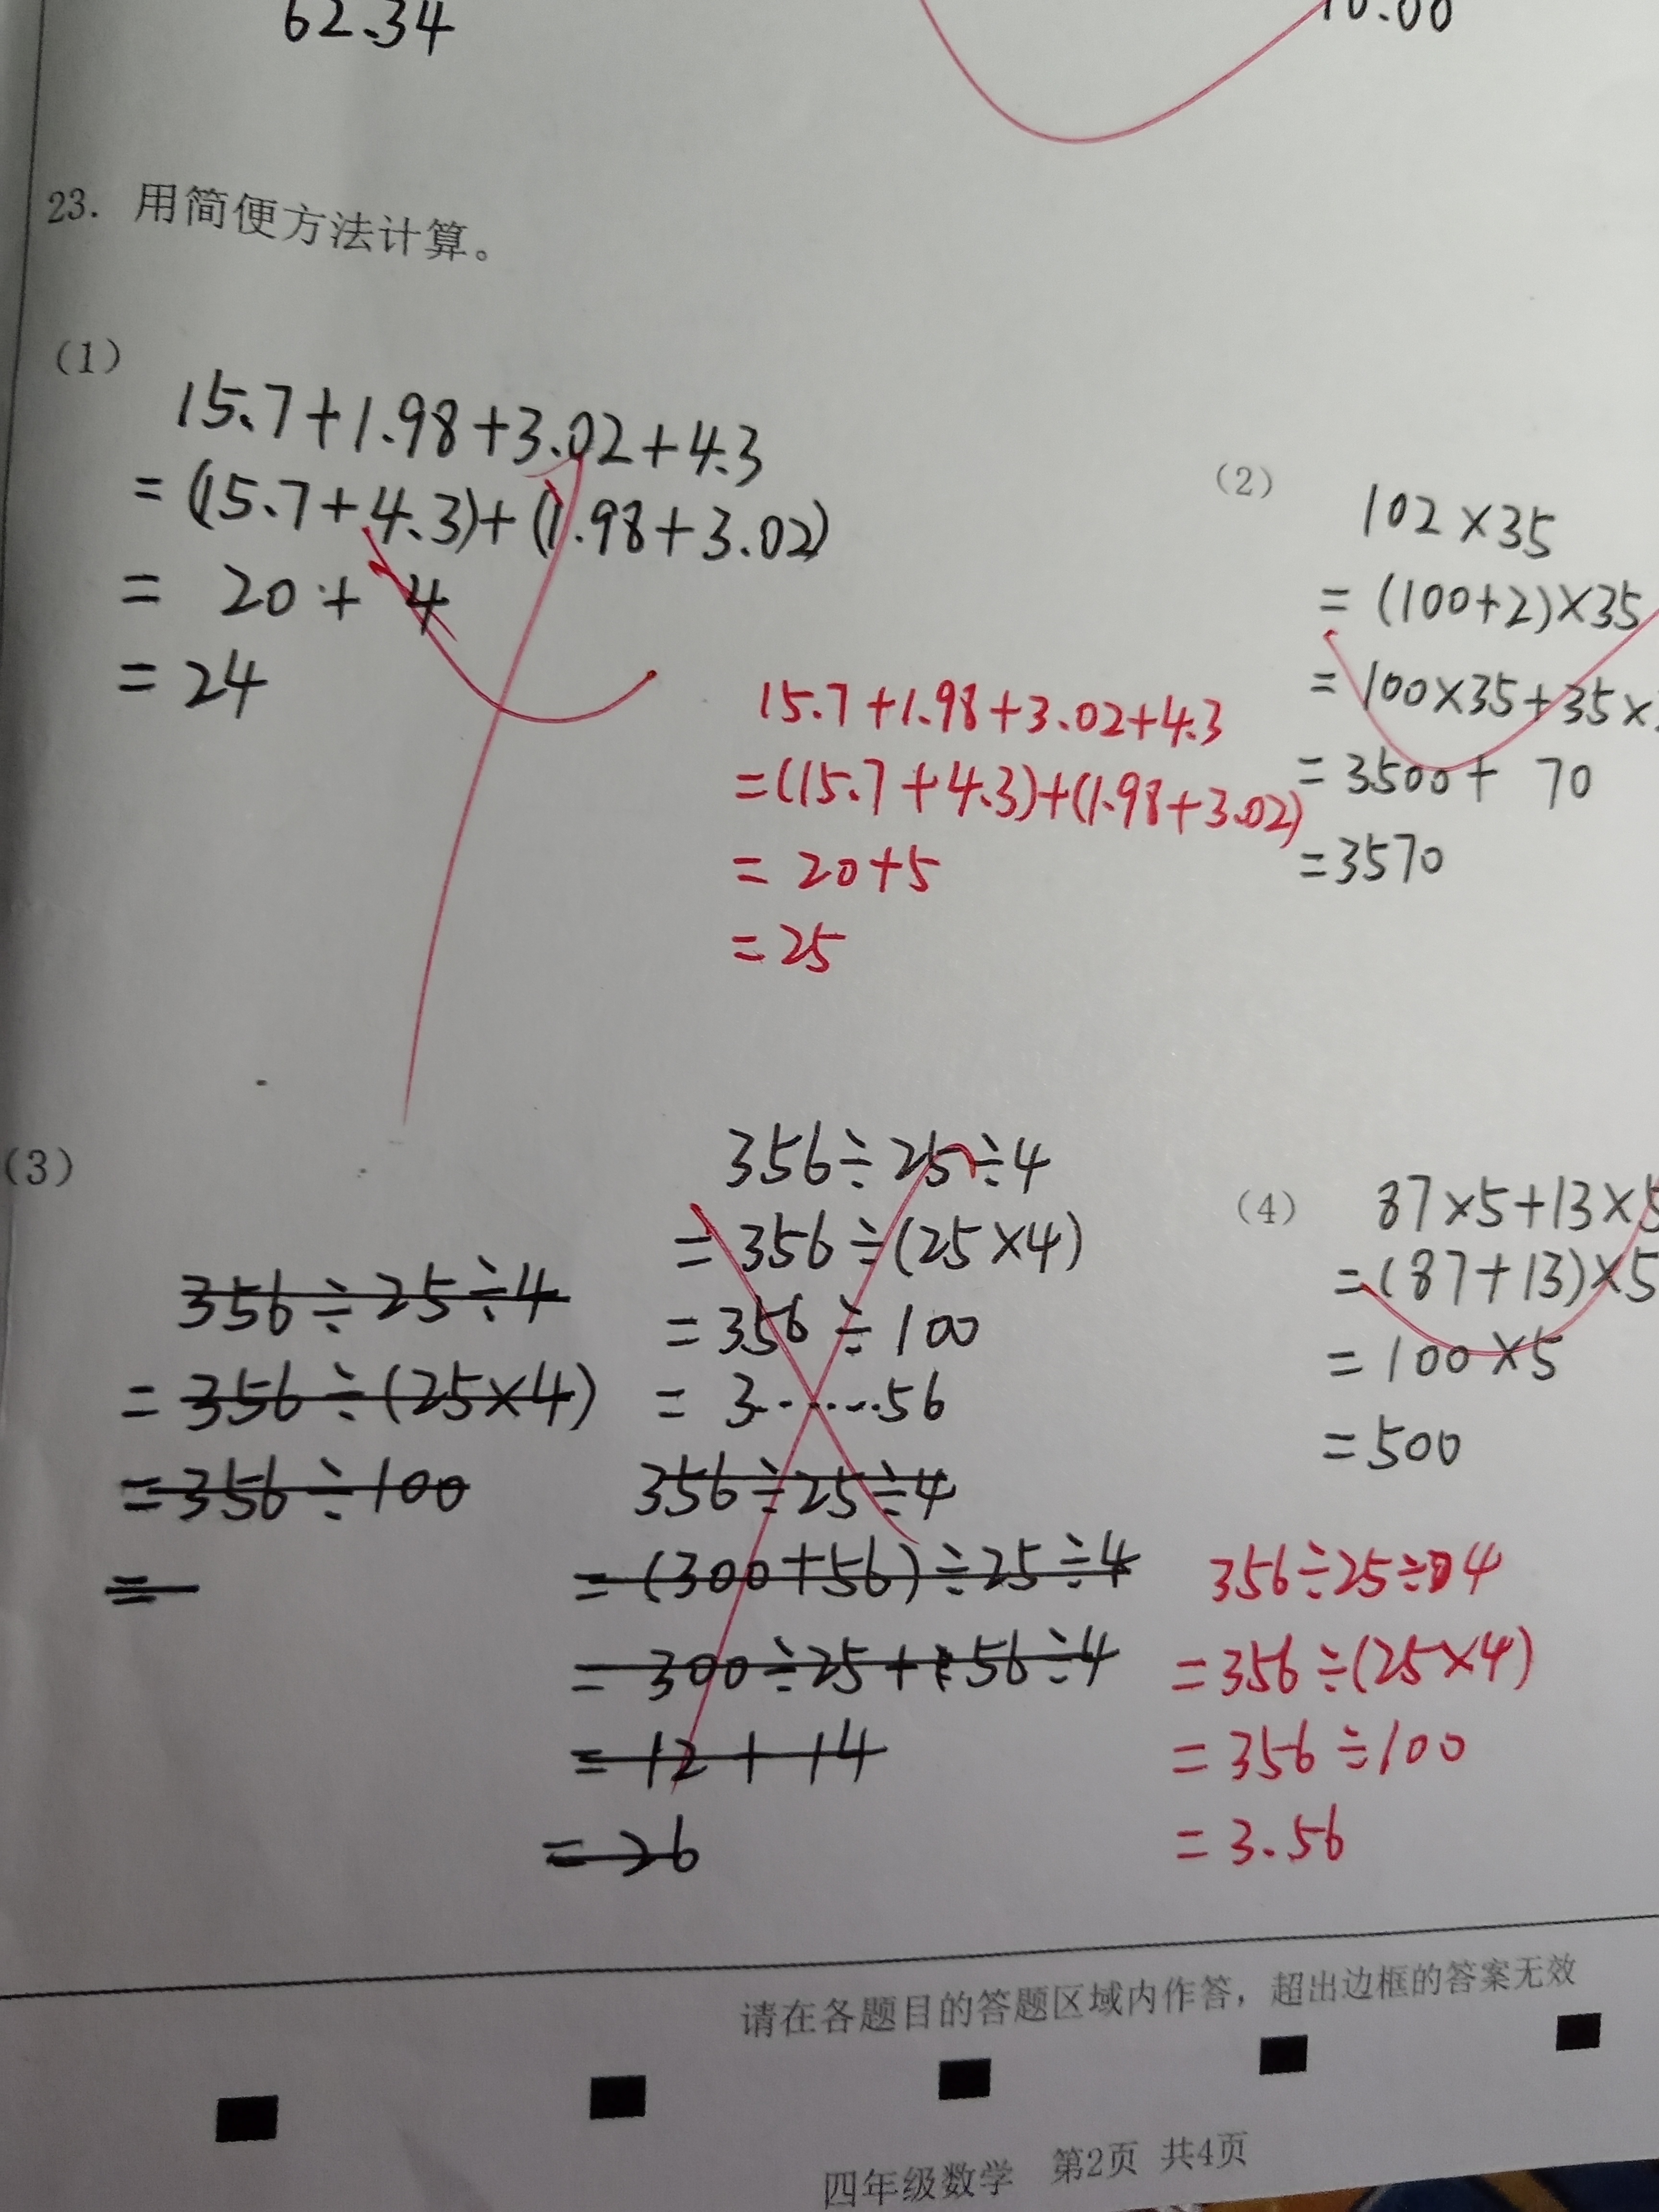 62.34
10.00
23. 用简便方法计算。
(1)
15.7+1.98+3.02+4.3
=(15.7+4.3)+(1.98+3.02)
= 20+ 4
=24
15.7+1.98+3.02+4.3
=(15.7+4.3)+(1.98+3.02)
= 20+5
=25
(2)
102×35
=(100+2)×35
=100×35+35×
=3500+ 70
=3570
(3)
356÷25÷4
=356÷(25×4)
=356÷100
=
356÷25÷4
=356÷(25×4)
=356÷100
= 3……56
356÷25÷4
=(300+56)÷25÷4
=300÷25+56÷4
=12+14
=26
(4)
87×5+13×5
=(87+13)×5
=100×5
=500
356÷25÷4
=356÷(25×4)
=356÷100
=3.56
请在各题目的答题区域内作答，超出边框的答案无效
四年级数学 第2页 共4页